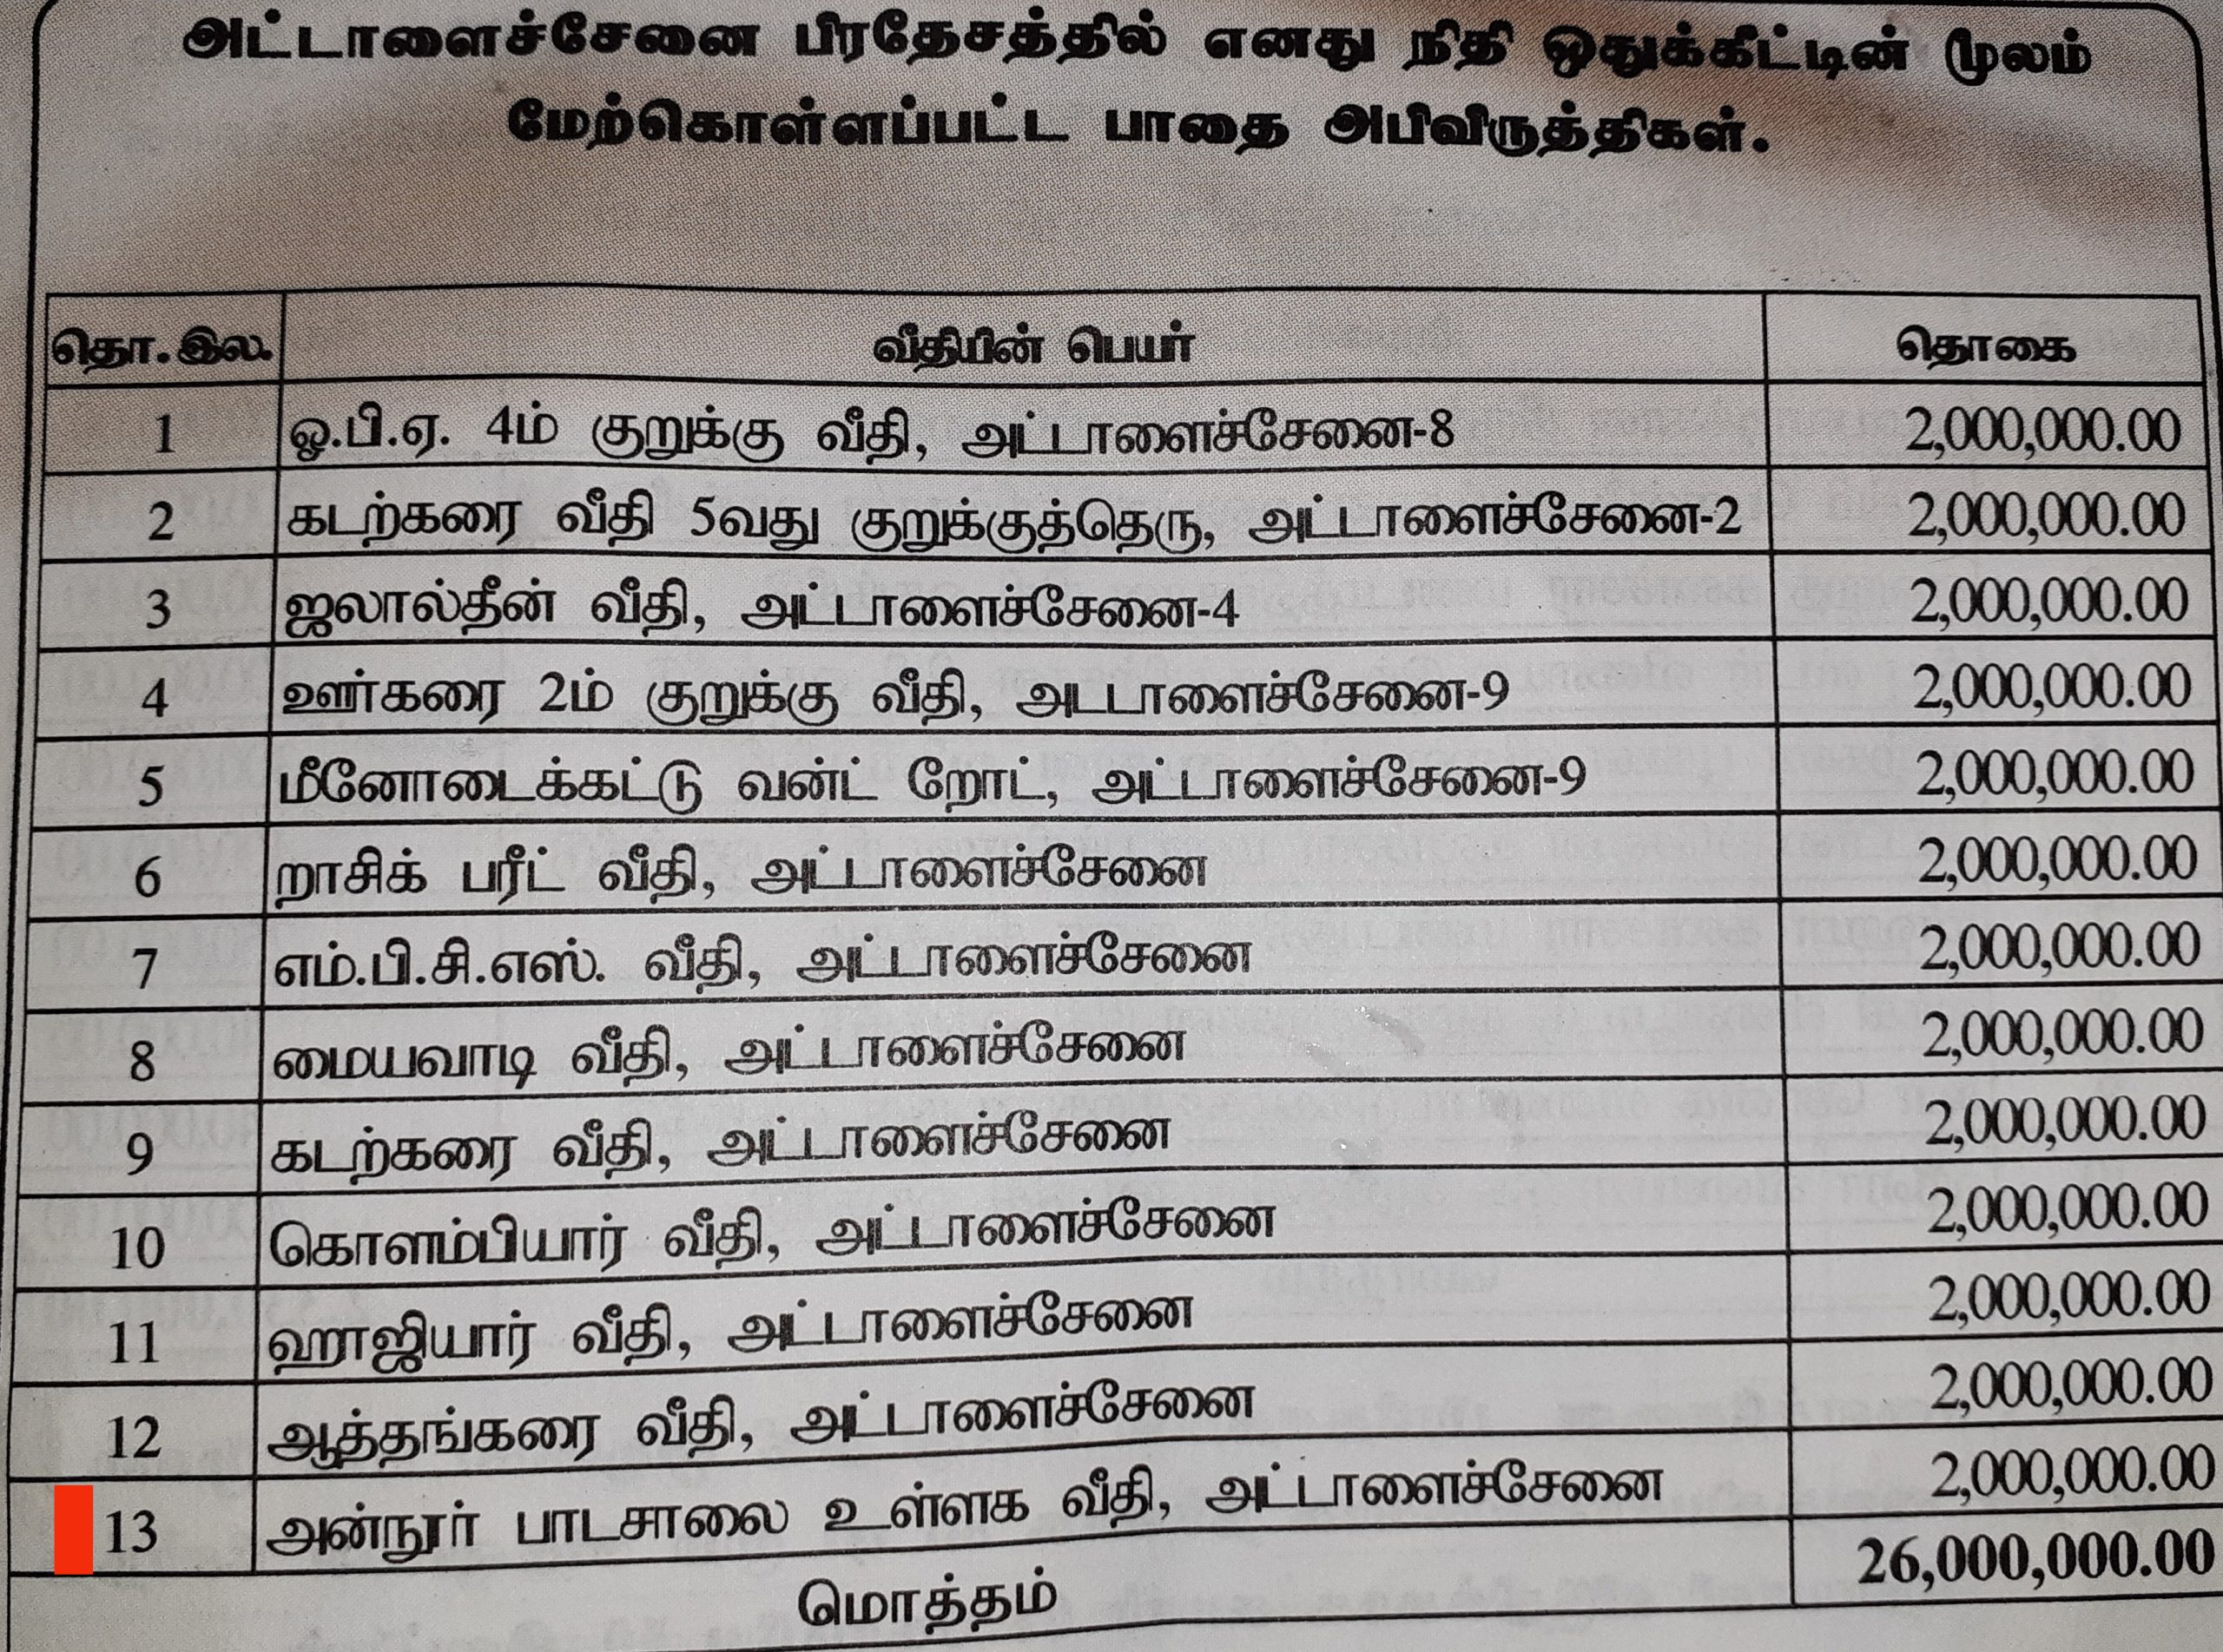 அட்டாளைச்சேனை பிரதேசத்தில் எனது நிதி ஒதுக்கீட்டின் மூலம்
மேற்கொள்ளப்பட்ட பாதை அபிவிருத்திகள்.
தொ.இல. வீதியின் பெயர் தொகை
1 ஓ.பி.ஏ. 4ம் குறுக்கு வீதி, அட்டாளைச்சேனை-8 2,000,000.00
2 கடற்கரை வீதி 5வது குறுக்குத்தெரு, அட்டாளைச்சேனை-2 2,000,000.00
3 ஜலால்தீன் வீதி, அட்டாளைச்சேனை-4 2,000,000.00
4 ஊர்கரை 2ம் குறுக்கு வீதி, அடடாளைச்சேனை-9 2,000,000.00
5 மீனோடைக்கட்டு வன்ட் றோட், அட்டாளைச்சேனை-9 2,000,000.00
6 றாசிக் பரீட் வீதி, அட்டாளைச்சேனை 2,000,000.00
7 எம்.பி.சி.எஸ். வீதி, அட்டாளைச்சேனை 2,000,000.00
8 மையவாடி வீதி, அட்டாளைச்சேனை 2,000,000.00
9 கடற்கரை வீதி, அட்டாளைச்சேனை 2,000,000.00
10 கொளம்பியார் வீதி, அட்டாளைச்சேனை 2,000,000.00
11 ஹாஜியார் வீதி, அட்டாளைச்சேனை 2,000,000.00
12 ஆத்தங்கரை வீதி, அட்டாளைச்சேனை 2,000,000.00
13 அன்நூர் பாடசாலை உள்ளக வீதி, அட்டாளைச்சேனை 2,000,000.00
மொத்தம் 26,000,000.00